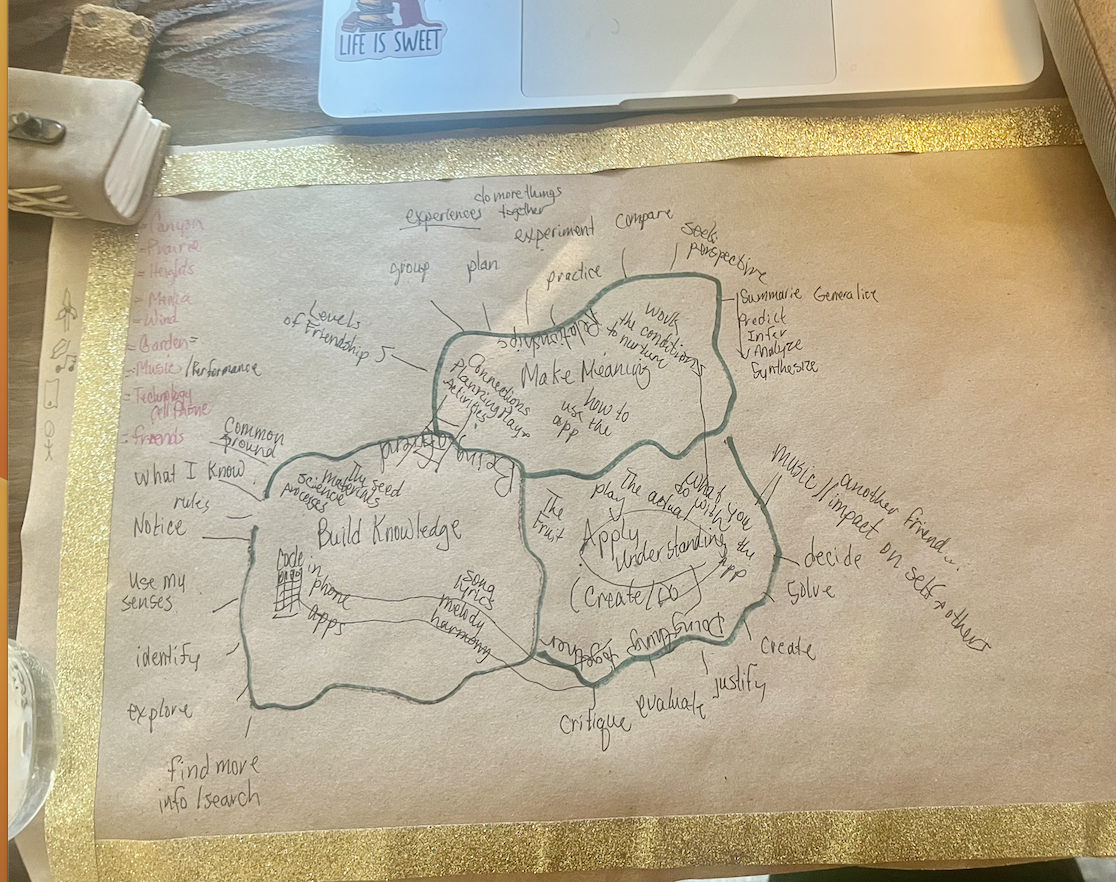 LIFE IS SWEET
- Canyon
- Prairie
- Heights
- Media
- Wind
- Garden =
- Music / Performance
- Technology
Cell Phone
- friends
do more things
together
experiences
experiment
compare
seek
perspective
group
plan
practice
Levels
of Friendship
Summarie Generalize
Predict
Infer
Analyze
Synthesize
Relationships
would
the conditions
to nurture
Make Meaning
Connections
Planning Plays
Activities
how to
use the
app
Common
ground
What I Know
rules
Notice
Use my
senses
identify
explore
find more
info / search
Personal
The seed
materials
science
Processes
Build Knowledge
Code in
phone
apps
song
lyrics
melody
harmony
The
Trust
The actual
play
what you
do with
the
app
Apply
Understanding
(Create/Do)
Doing things
together
music // another friend...
impact on self + others
decide
Solve
create
justify
evaluate
critique